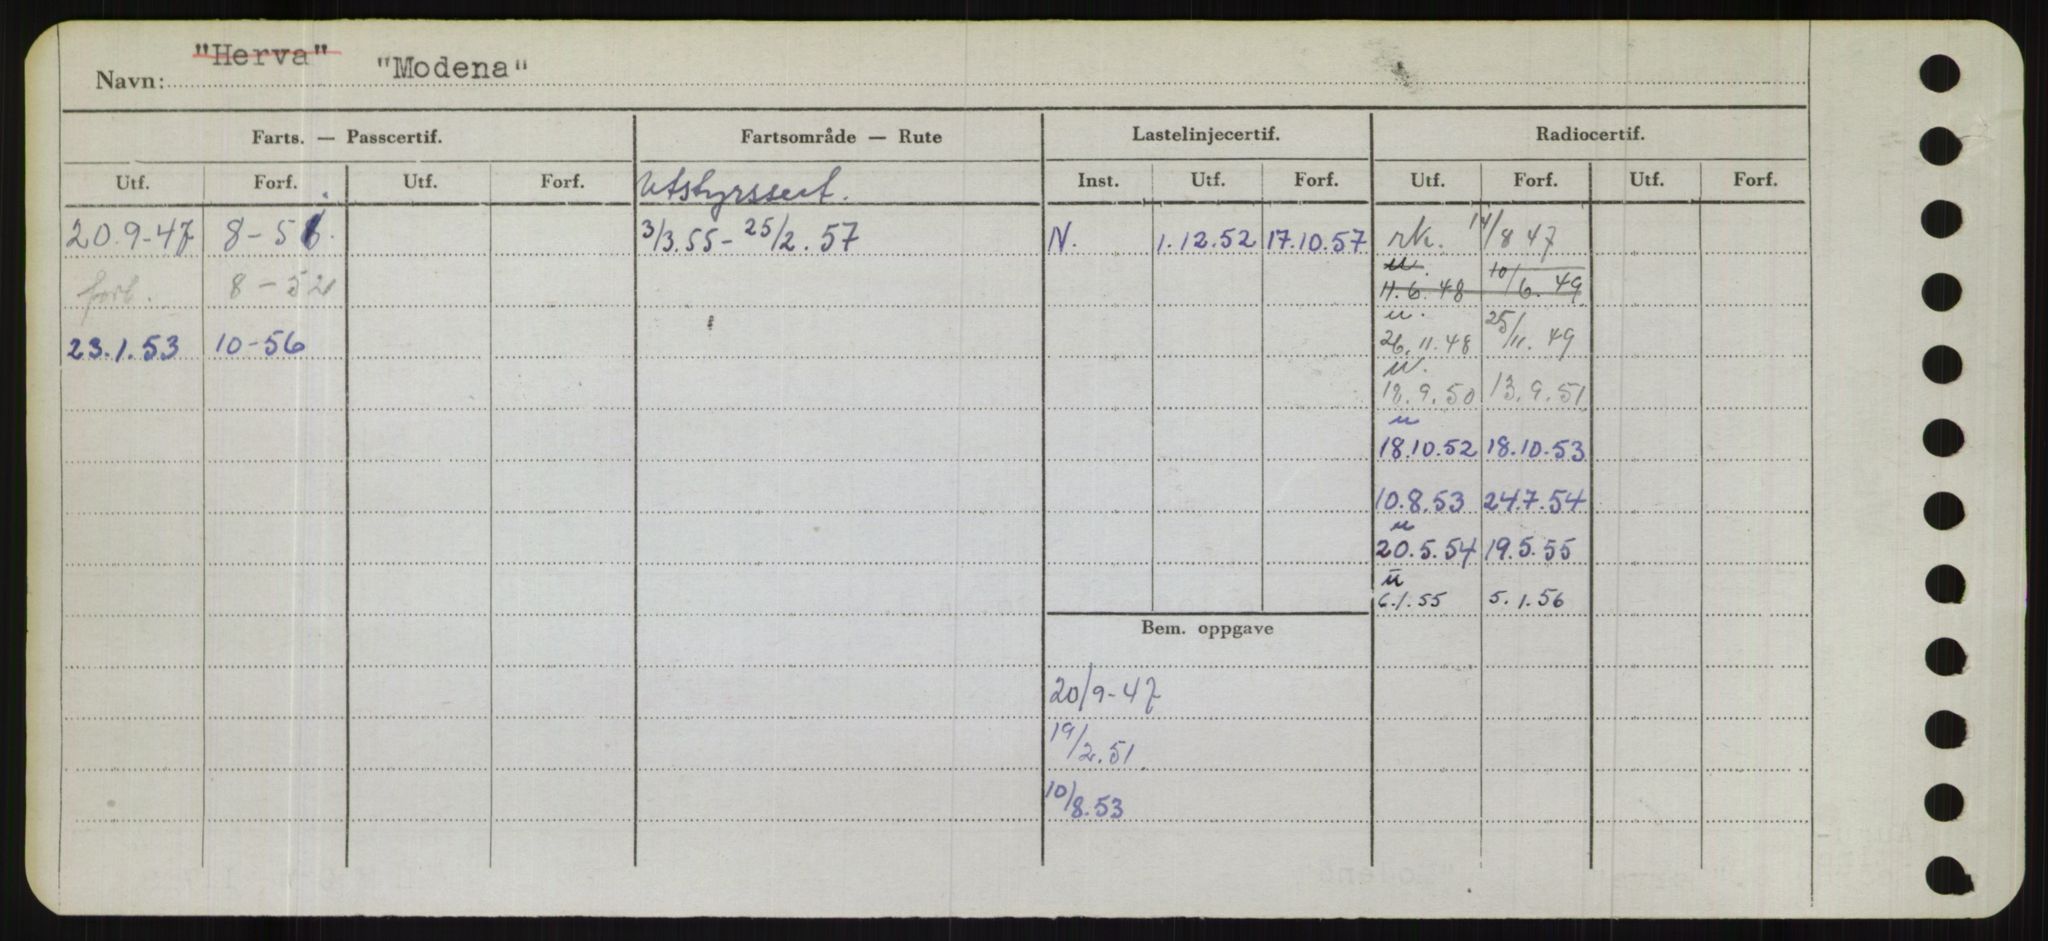 "Herva" "Modena"
Navn:
Farts. — Passcertif. Fartsområde — Rute Lastelinjecertif. Radiocertif.
Utf. Forf. Utf. Forf. Utstyrssert. Inst. Utf. Forf. Utf. Forf. Utf. Forf.
20.9-47 8-51. 3/3.55- 25/2.57 N. 1.12.52 17.10.57 rk. 14/8 47
forl. 8-52 u. 11.6.48 10/6.49
23.1.53 10-56 u. 26.11.48 25/11.49
u. 18.9.50 13.9.51
u
18.10.52 18.10.53
10.8.53 24.7.54
u
20.5.54 19.5.55
u
6.1.55 5.1.56
Bem. oppgave
20/9-47
19/2.51.
10/8.53